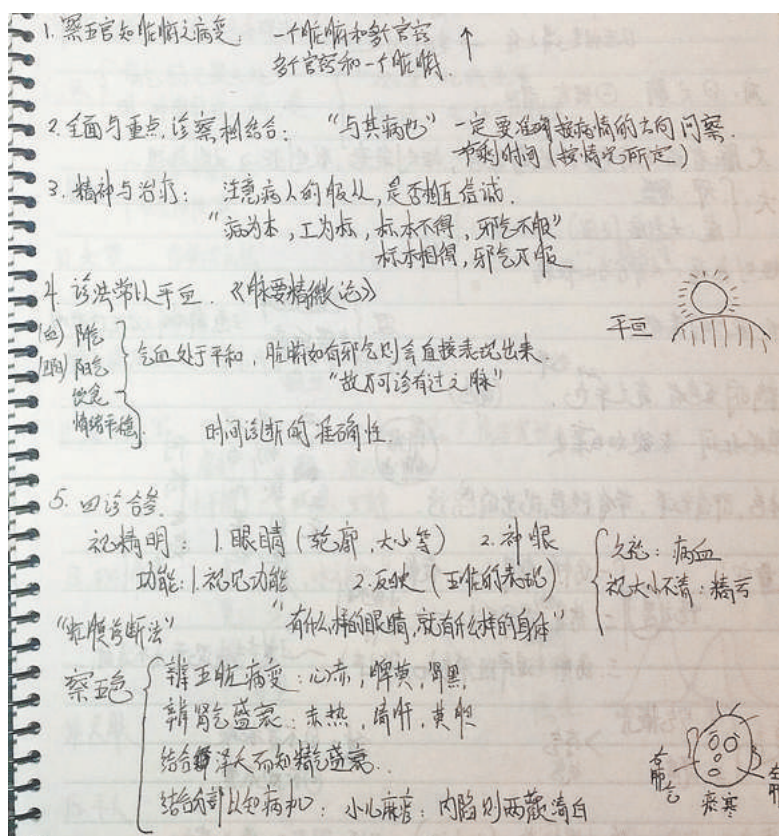 1. 察五官知脏腑之病变 一个脏腑和多个官窍 ↑
多个官窍和一个脏腑.
2. 全面与重点诊察相结合: "与其病也" 一定要准确按病情的去向问察.
节剩时间(按情况所定)
3. 精神与治疗: 注意病人的服从, 是否相互信诚.
"病为本, 工为标, 标本不得, 邪气不服"
标本相得, 邪气乃服
4. 诊法常以平旦. 《脉要精微论》
平旦
阴气
阳气
饮食
情绪平稳
气血处于平和, 脏腑如有邪气则会直接表现出来.
"故乃可诊有过之脉"
时间诊断的准确性.
5. 四诊合参
视精明: 1. 眼睛(轮廓, 大小等) 2. 神眼
功能: 1. 视见功能 2. 反映(五脏的表现)
久视: 病血
视大小不清: 精亏
"虹膜诊断法" "有什么样的眼睛, 就有什么样的身体"
察五色
辨五脏病变: 心赤, 脾黄, 肾黑
辨肾气盛衰: 赤热, 黄胆
结合泽夭而知精气盛衰.
结合分部以知病机: 小儿麻疹: 内陷则两颧清白
右肺气
左肝
瘀寒